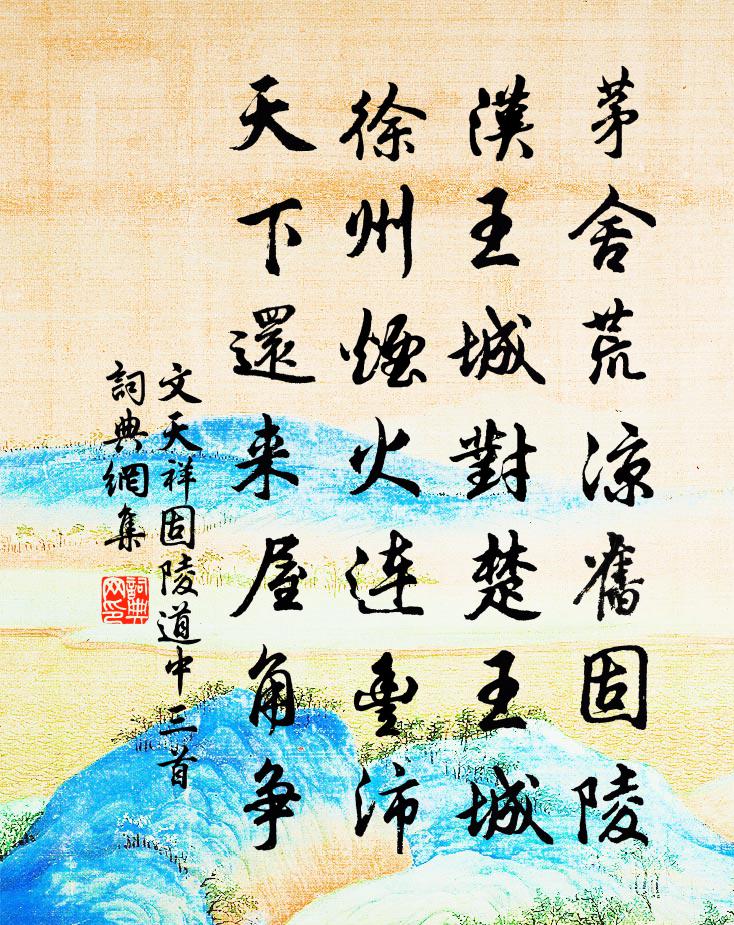 茅舍荒涼舊固陵
漢王城對楚王城
徐州煙火連豐沛
天下還来屋角爭
文天祥固陵道中三首
詞典網集
詞典网印